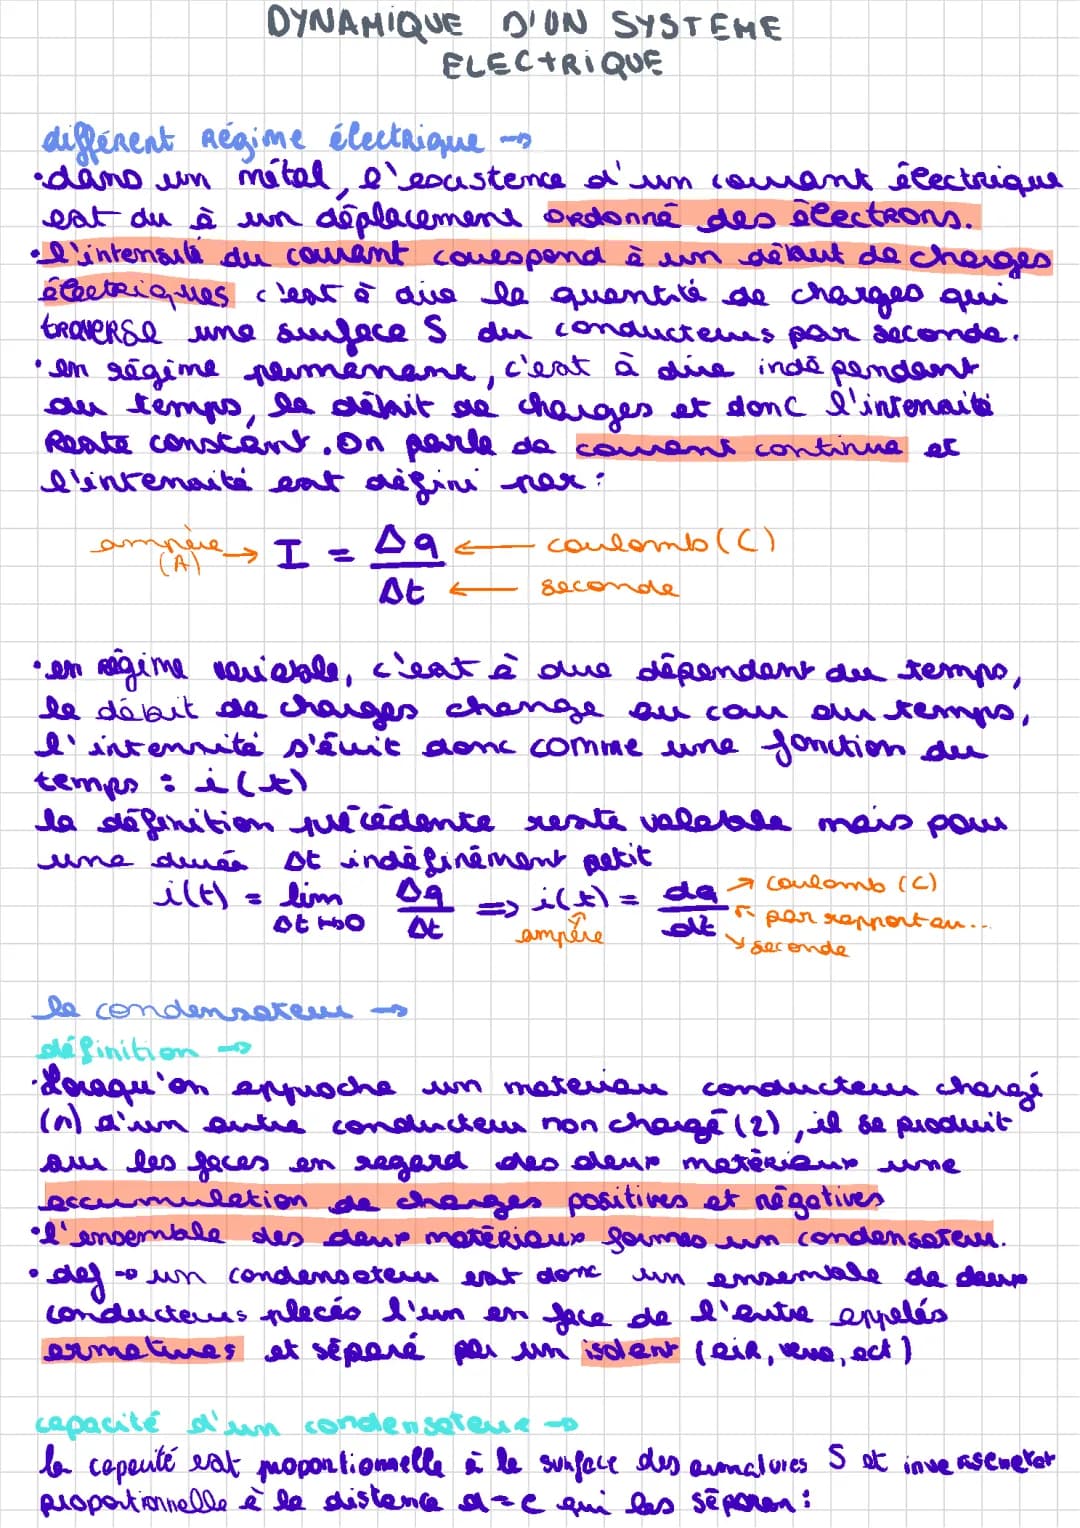 DYNAMIQUE D'UN SYSTEME
ELECTRIQUE
différent Régime électrique →
•dans un métal, l'existence d'un courant électrique
est du à un déplacement ordonné des électrons.
•l'intensité du courant correspond à un débit de charges
électriques c'est à dire la quantité de charges qui
traverse une surface S du conducteurs par seconde.
•en régime permanant, c'est à dire indépendant
du temps, le débit de charges et donc l'intensité
Reste constant. On parle de courant continue et
l'intensité est défini par :
ampère (A) → I = Δq/Δt ← coulomb (C)
← seconde
•en régime variable, c'est à dire dépendant du temps,
le débit de charges change au cour du temps,
l'intensité s'écrit donc comme une fonction du
temps : i(t)
la définition précédente reste valable mais pour
une durée Δt indéfinément petit
i(t) = lim Δt→0 Δq/Δt => i(t) = dq/dt → coulomb (C)
par rapport au...
ampère
seconde
le condensateur →
définition →
•Lorsqu'on approche un materiau conducteur chargé
(1) d'un autre conducteur non chargé (2), il se produit
sur les faces en regard des deux matériaux une
accumulation de charges positives et négatives
•l'ensemble des deux matériaux formes un condensateur.
•def → un condensateur est donc un ensemble de deux
conducteurs placés l'un en face de l'autre appelés
armatures et séparé par un isolant (air, verre, ect)
capacité d'un condensateur →
la capacité est proportionnelle à la surface des armatures S et
proportionnelle à la distance d=e qui les séparen :